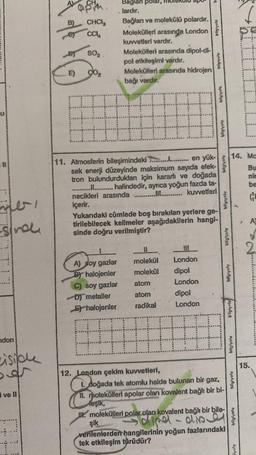 Bağları polar,
lardır.
B) CHCl₃ Bağları ve molekülü polardır.
C) CCl₄ Molekülleri arasında London
kuvvetleri vardır.
D) SO₂ Molekülleri arasında dipol-di-
pol etkileşimi vardır.
E) CO₂ Molekülleri arasında hidrojen
bağı vardır.
11. Atmosferin bileşimindeki ......I...... en yük-
sek enerji düzeyinde maksimum sayıda elek-
tron bulundurdukları için kararlı ve doğada
......II...... halindedir, ayrıca yoğun fazda ta-
necikleri arasında ......III...... kuvvetleri
içerir.
Yukarıdaki cümlede boş bırakılan yerlere ge-
tirilebilecek kelimeler aşağıdakilerin hangi-
sinde doğru verilmiştir?
I II III
A) soy gazlar molekül London
B) halojenler molekül dipol
C) soy gazlar atom London
D) metaller atom dipol
E) halojenler radikal London
12. London çekim kuvvetleri,
I. doğada tek atomlu halde bulunan bir gaz,
II. molekülleri apolar olan kovalent bağlı bir bi-
leşik,
III. molekülleri polar olan kovalent bağlı bir bile-
şik
verilenlerden hangilerinin yoğun fazlarındaki
tek etkileşim türüdür?
14.
15.
II
ndon
I ve II